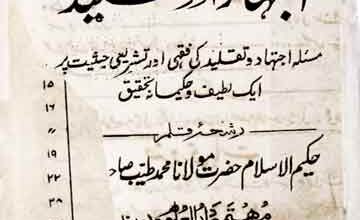 اجتہاد اور تقلید
مسئلہ اجتہاد و تقلید کی فقہی اور تشریعی حیثیت پر
ایک لطیف و حکیمانہ تحقیق
رشحۂ قلم
حکیم الاسلام حضرت مولانا محمد طیب صاحب
مہتمم دارالعلوم دیوبند
۱۵
۱۶
〃
۱۹
۲۲
۲۸